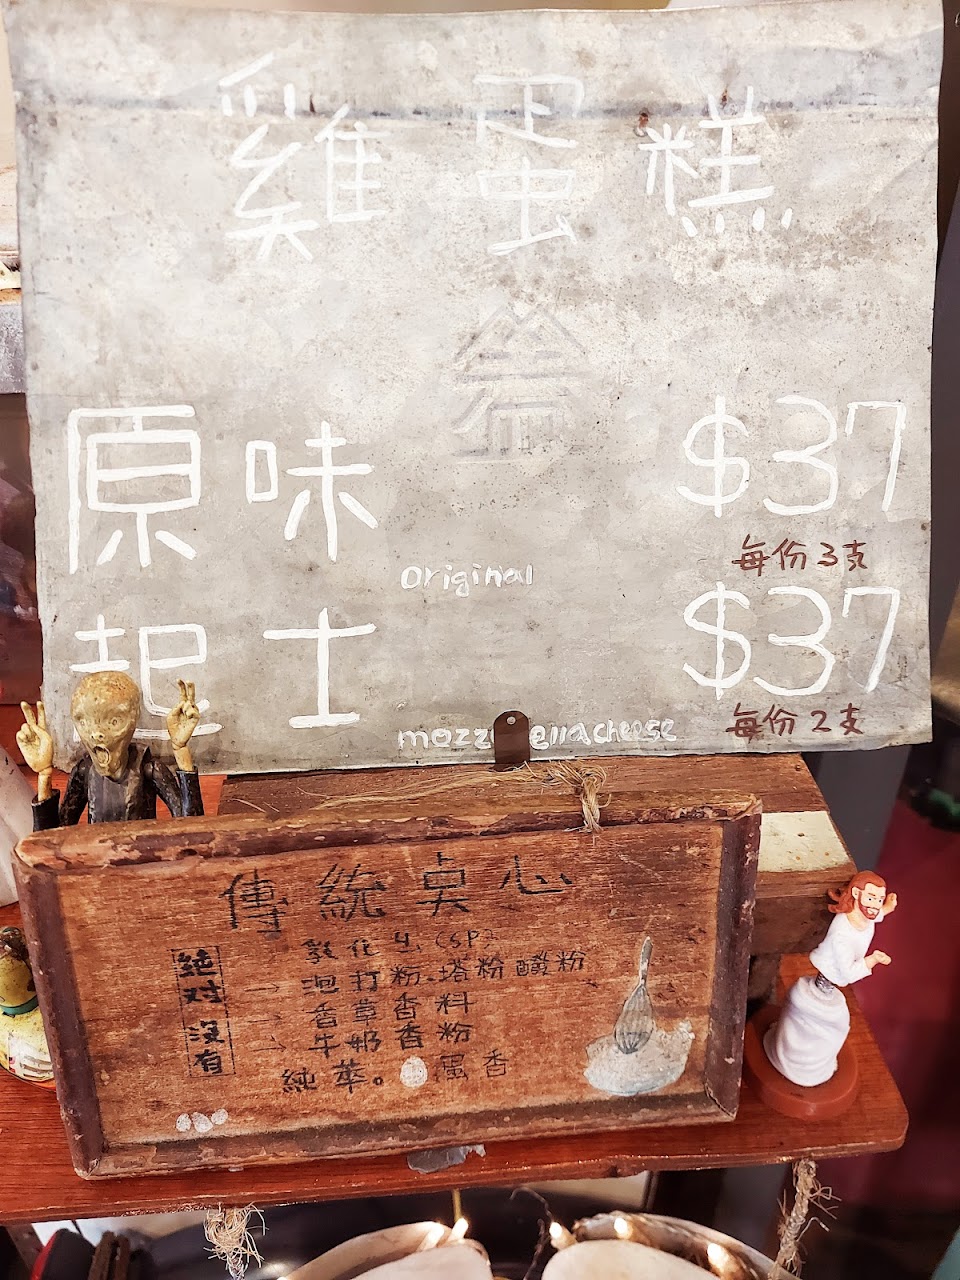 雞蛋糕
原味 original $37
每份3支
起士 mozzarella cheese $37
每份2支
傳統桌心
絕对沒有
乳化劑(SP)
→ 泡打粉.塔塔粉 酸粉
→ 香草香料
→ 牛奶香粉
純萃。蛋香